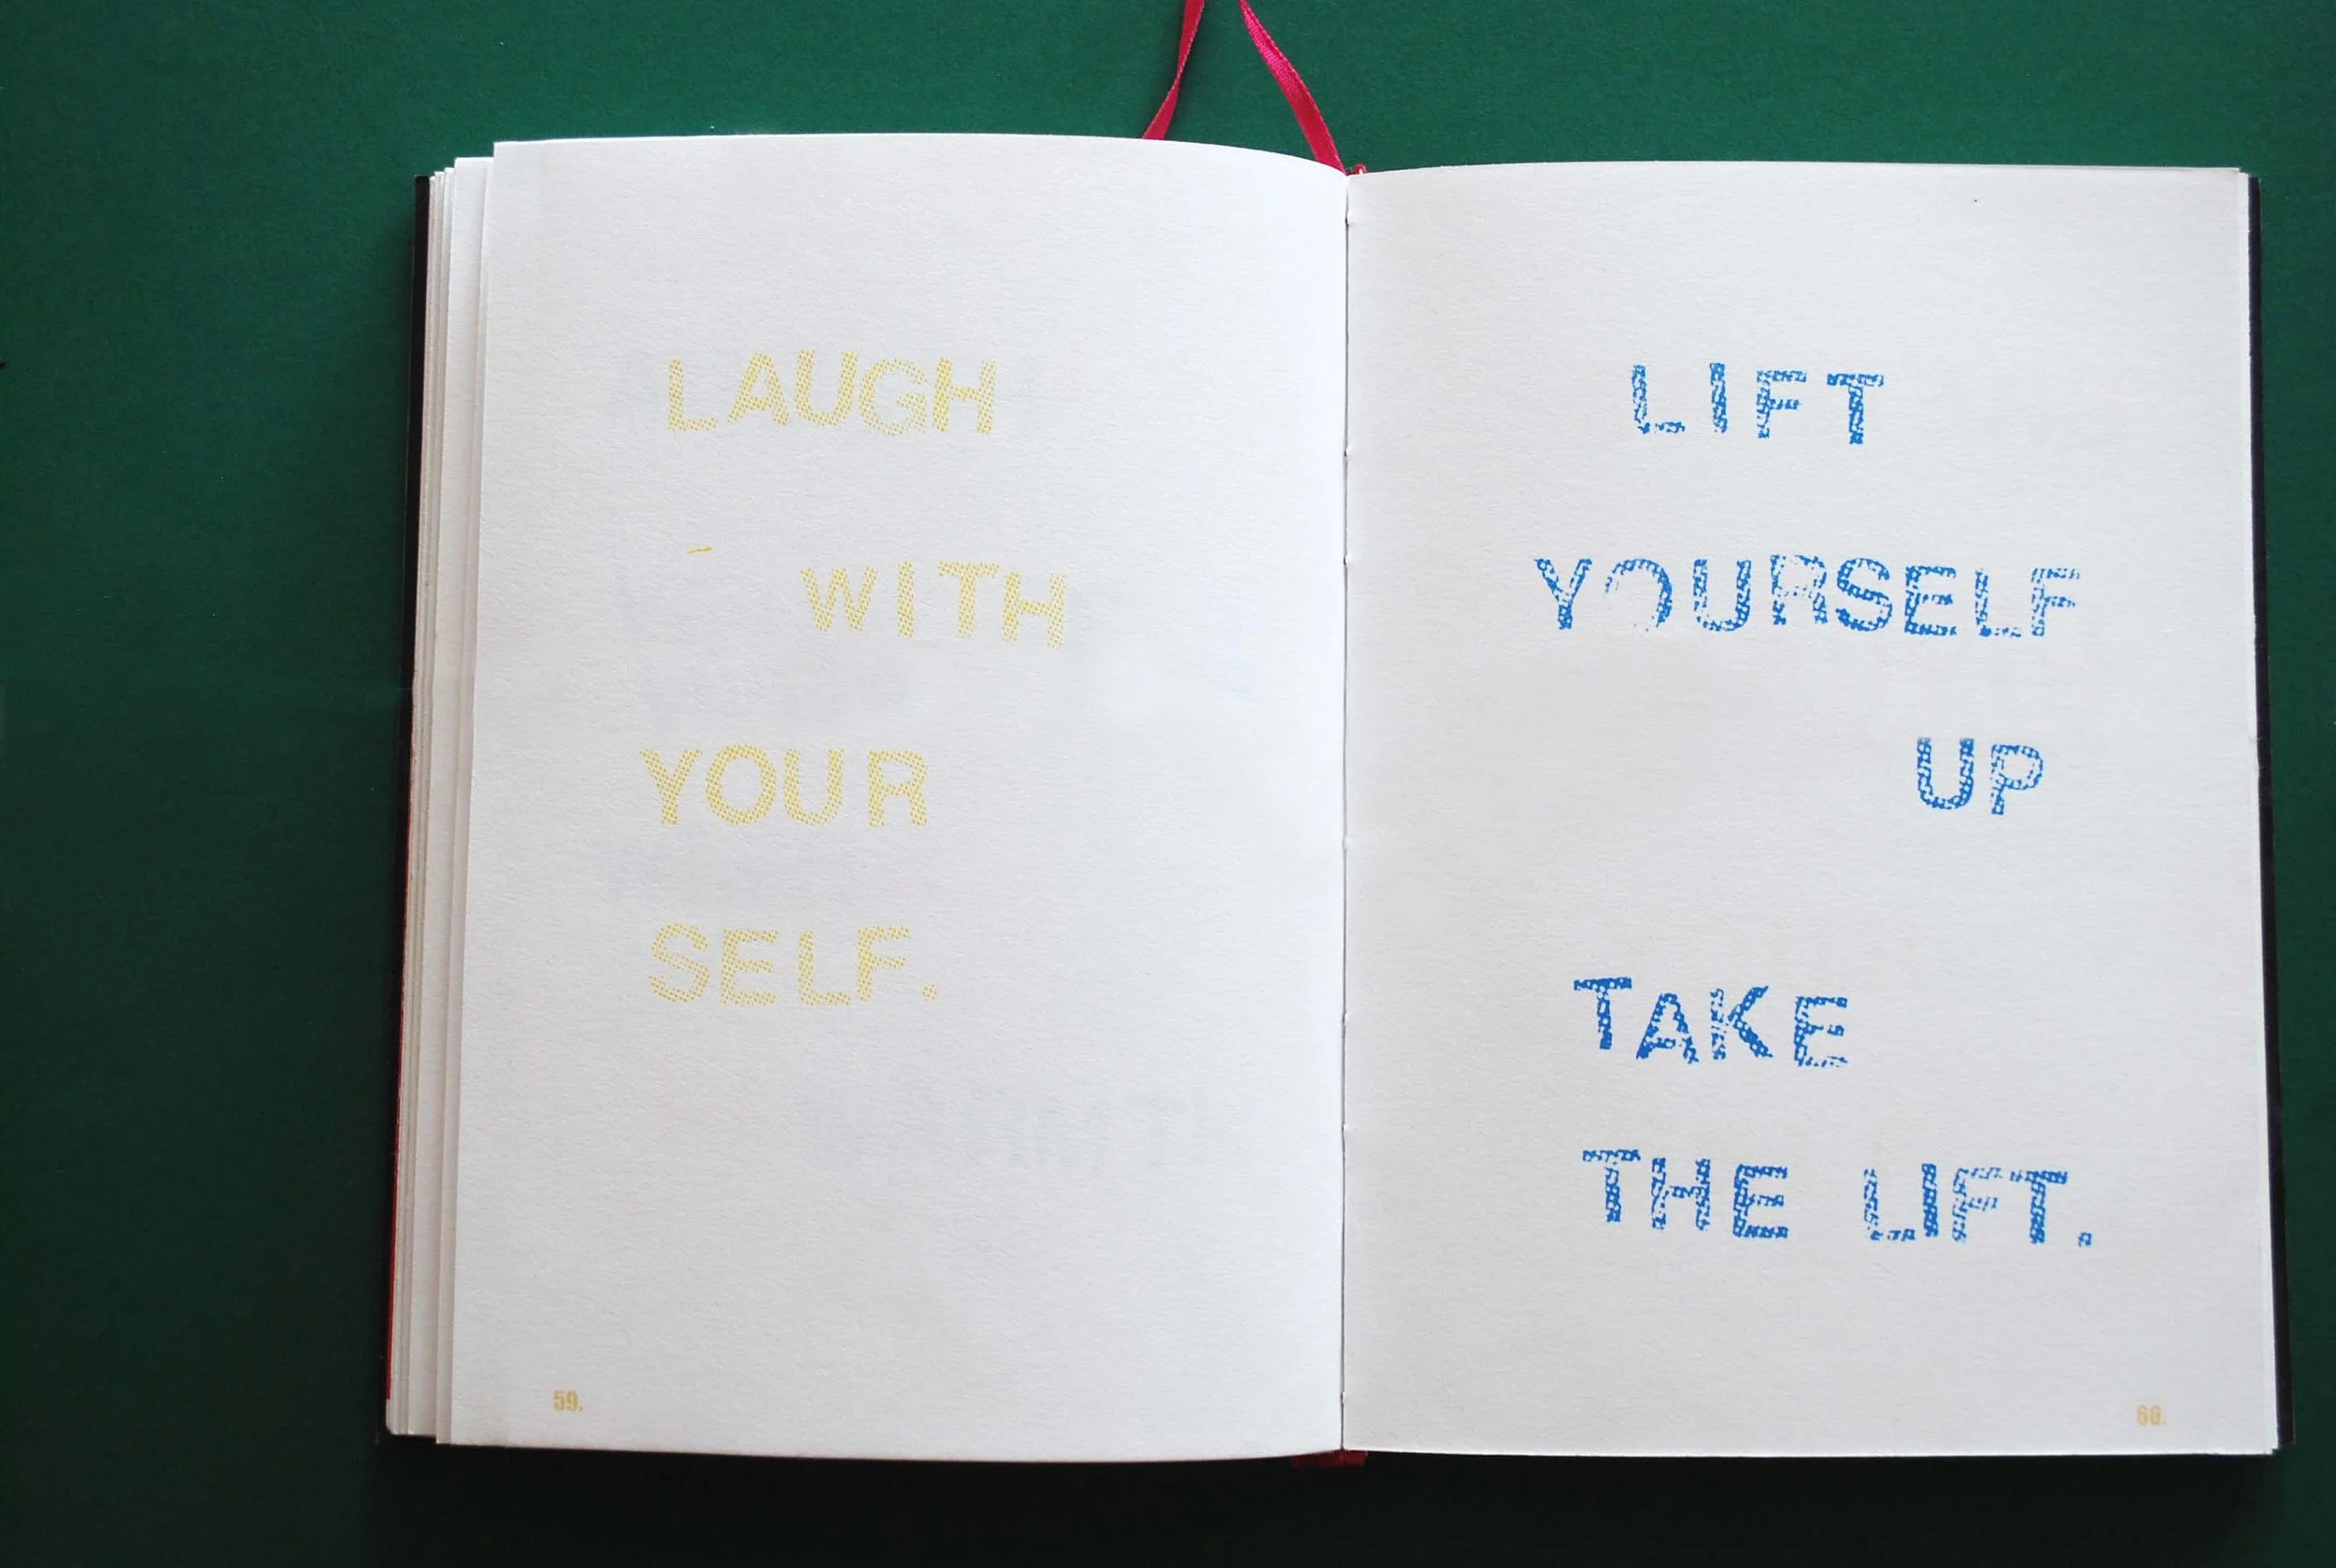 LAUGH
WITH
YOUR
SELF.
59.
LIFT
YOURSELF
UP
TAKE
THE LIFT.
60.